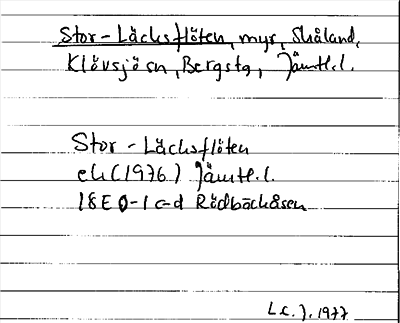 Stor-Läcksflöten, myr, Skåland,
Klövsjö sn, Bergstg, Jämtl.l.
Stor-Läcksflöten
ek (1976) Jämtl.l.
18E 0-1 c-d Rödbäckåsen
L.C.J. 1977